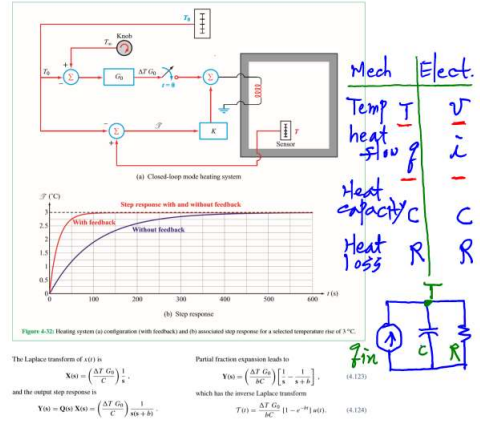 T₀
Knob
T∞
T₀
+
Σ
−
G₀
ΔT G₀
t = 0
Σ
−
Σ
+
𝒯
K
T
Sensor
(a) Closed-loop mode heating system
𝒯 (°C)
Step response with and without feedback
3
With feedback
Without feedback
2.5
2
1.5
1
0.5
0
0
100
200
300
400
500
600
t (s)
(b) Step response
Figure 4-32: Heating system (a) configuration (with feedback) and (b) associated step response for a selected temperature rise of 3 °C.
The Laplace transform of x(t) is
X(s) = (ΔT G₀ / C) 1/s,
and the output step response is
Y(s) = Q(s) X(s) = (ΔT G₀ / C) 1/(s(s + b))
Partial fraction expansion leads to
Y(s) = (ΔT G₀ / bC) [1/s − 1/(s + b)], (4.123)
which has the inverse Laplace transform
𝒯(t) = ΔT G₀ / bC [1 − e^−bt] u(t). (4.124)
Mech Elect.
Temp T v
heat flow q i
Heat capacity C C
Heat loss R R
T
qin
C
R